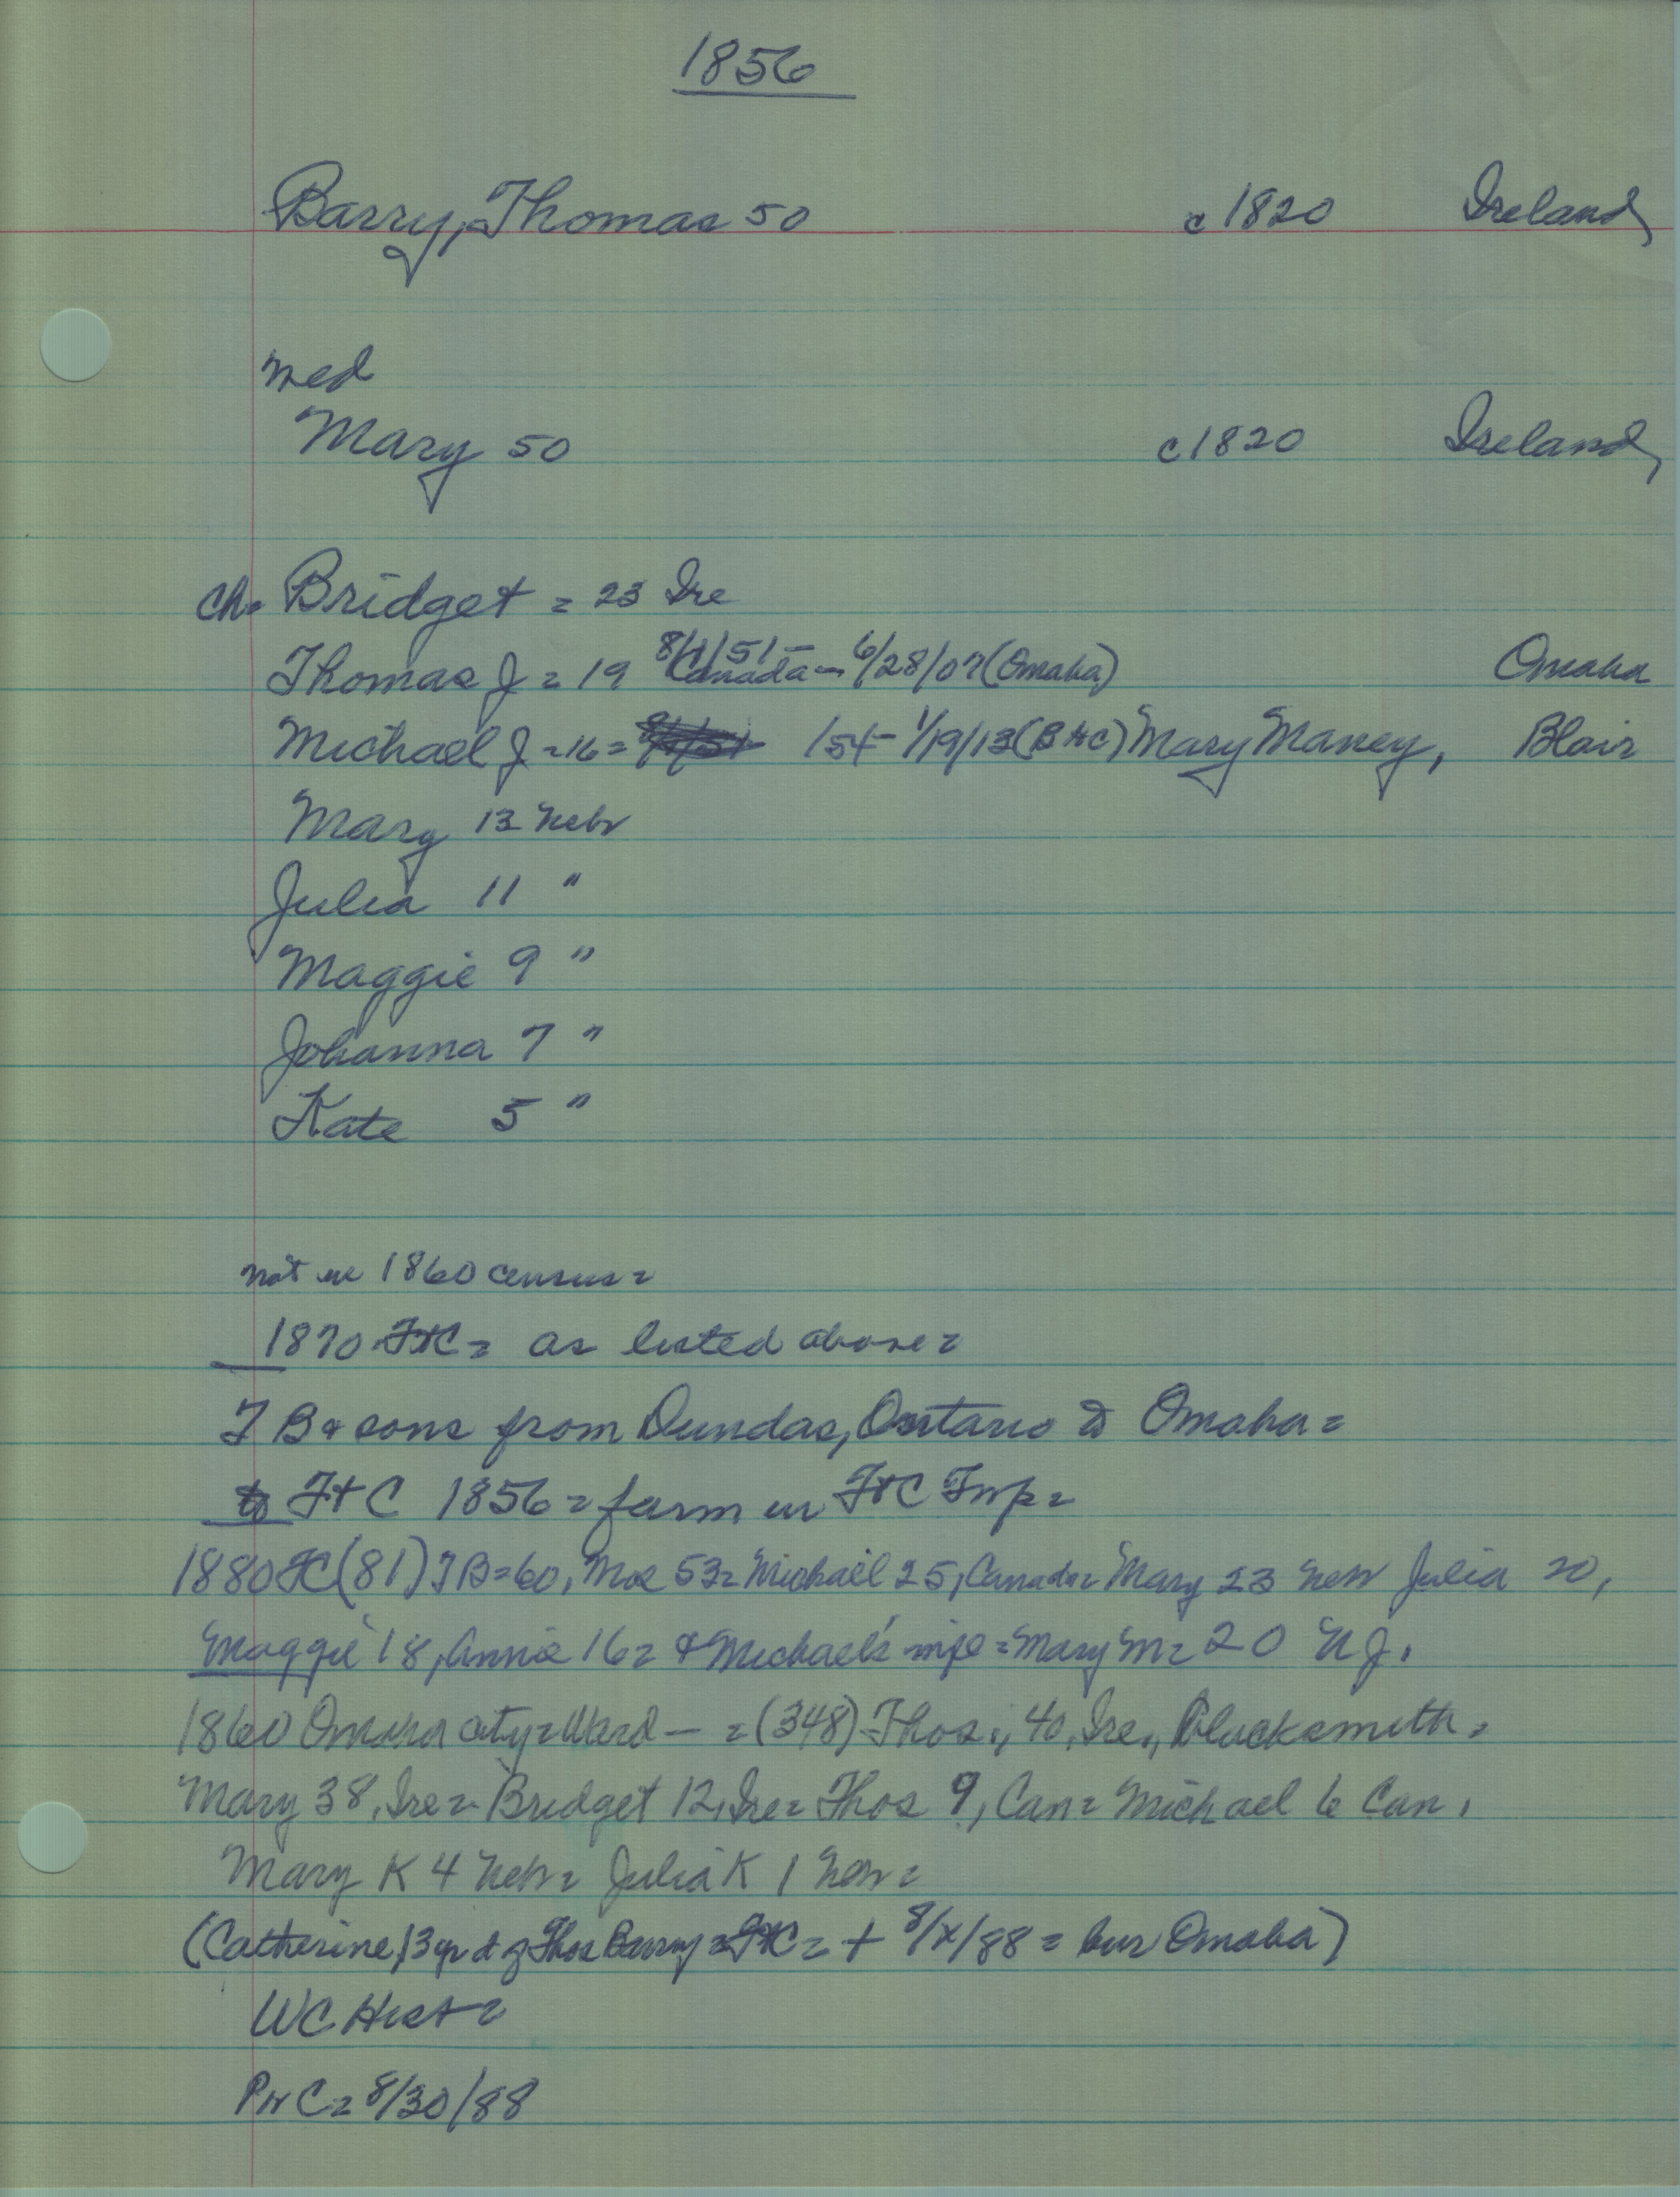 1856
Barry, Thomas 50 c1820 Ireland
med
Mary 50 c1820 Ireland
ch= Bridget = 23 Ire
Thomas J = 19 8/1/51 - Canada - 6/28/07 (Omaha) Omaha
Michael J = 16 = /54 - 1/19/13 (B HC) Mary Maney, Blair
Mary 13 Nebr
Julia 11 "
Maggie 9 "
Johanna 7 "
Kate 5 "
not in 1860 census =
1870 FtC = as listed above =
T B & sons from Dundas, Ontario to Omaha =
to Ft C 1856 = farm in FtC Twp =
1880 FC (81) T B = 60, Mae 53 = Michael 25, Canada = Mary 23 Nebr Julia 20,
Maggie 18, Annie 16 = & Michael's wife = Mary M = 20 N J.
1860 Omaha city = Ward — = (348) Thos., 40, Ire., Blacksmith =
Mary 38, Ire = Bridget 12, Ire = Thos 9, Can = Michael 6 Can,
Mary K 4 Nebr = Julia K 1 Nebr =
(Catherine, 13 yr d of Thos Barry = FtC = + 8/x/88 = bur Omaha)
WC Hist =
P C = 8/30/88